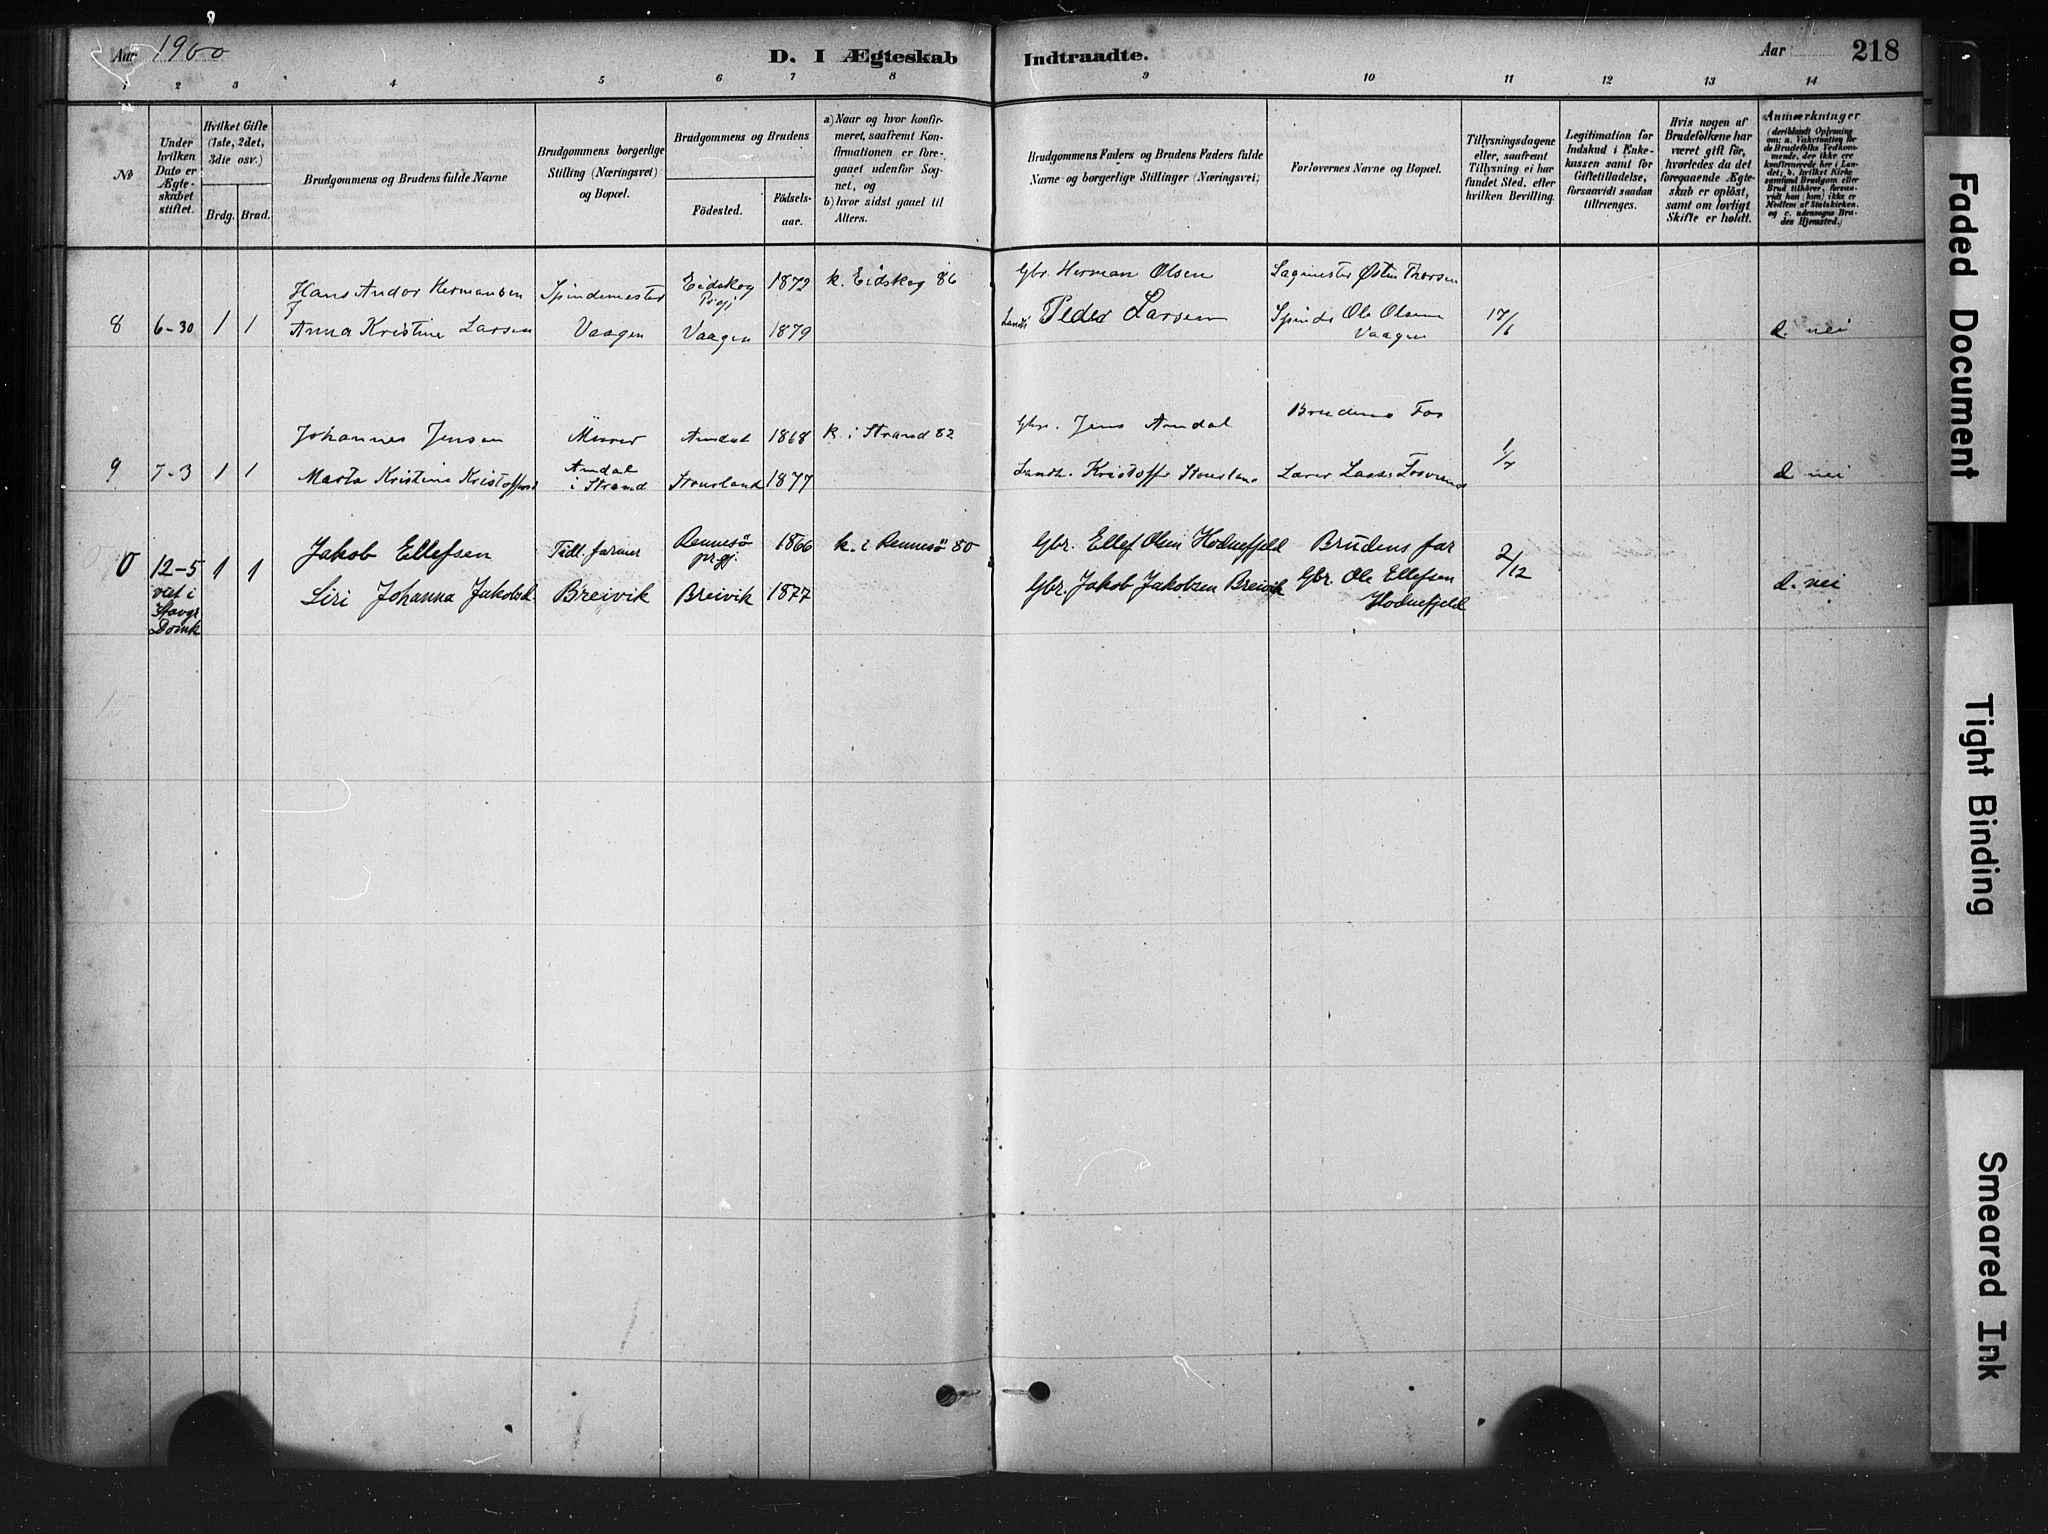 Aar 1900
D. I Ægteskab Indtraadte.
Aar 218
1 2 3 4 5 6 7 8 9 10 11 12 13 14
No
Under hvilken Dato er Ægteskabet stiftet.
Hvilket Gifte (1ste, 2det, 3die osv.)
Brdg. Brud.
Brudgommens og Brudens fulde Navne
Brudgommens borgerlige Stilling (Næringsvei) og Bopæl.
Brudgommens og Brudens
Födested.
Födselsaar.
a) Naar og hvor konfirmeret, saafremt Konfirmationen er foregaaet udenfor Sognet, og
b) hvor sidst gaaet til Alters.
Brudgommens Faders og Brudens Faders fulde Navne og borgerlige Stillinger (Næringsvei)
Forlovernes Navne og Bopæl.
Tillysningsdagene eller, saafremt Tillysning ei har fundet Sted, efter hvilken Bevilling.
Legitimation for Indskud i Enkekassen samt for Giftetilladelse, forsaavidt saadan tiltrænges.
Hvis nogen af Brudefolkene har været gift för, hvorledes da det foregaaende Ægteskab er oplöst, samt om lovligt Skifte er holdt.
Anmærkninger
Hans Andor Hermansen Spindemester Eidskog Prgj 1872 k. Eidskog 86 Gbr. Herman Olsen Sagmester Østen Thorsen
8 6-30 1 1 Anna Kristine Larsen Vaagen Vaagen 1879 Peder Larsen Ole Olsen Vaagen 17/6 d. nei
Johannes Jensen Murer Amdal 1868 k. i Strand 82 Gbr. Jens Amdal Brudens Far
9 7-3 1 1 Marta Kristine Kristoffersd Amdal i Strand 1877 Kristoffer 1/7 d. nei
Jakob Ellefsen Tidl. farmer Rennesö prgj. 1866 k. i Rennesö 80 Gbr. Ellef Olsen Hodnefjeld Brudens far
0 12-5 1 1 Siri Johanna Jakobsd. Breivik Breivik 1877 Gbr. Jakob Jakobsen Breivik Gbr. Ole Ellefsen 2/12 d. nei
viet i Stavgr. Domk
Hodnefjeld
Faded Document
Tight Binding
Smeared Ink